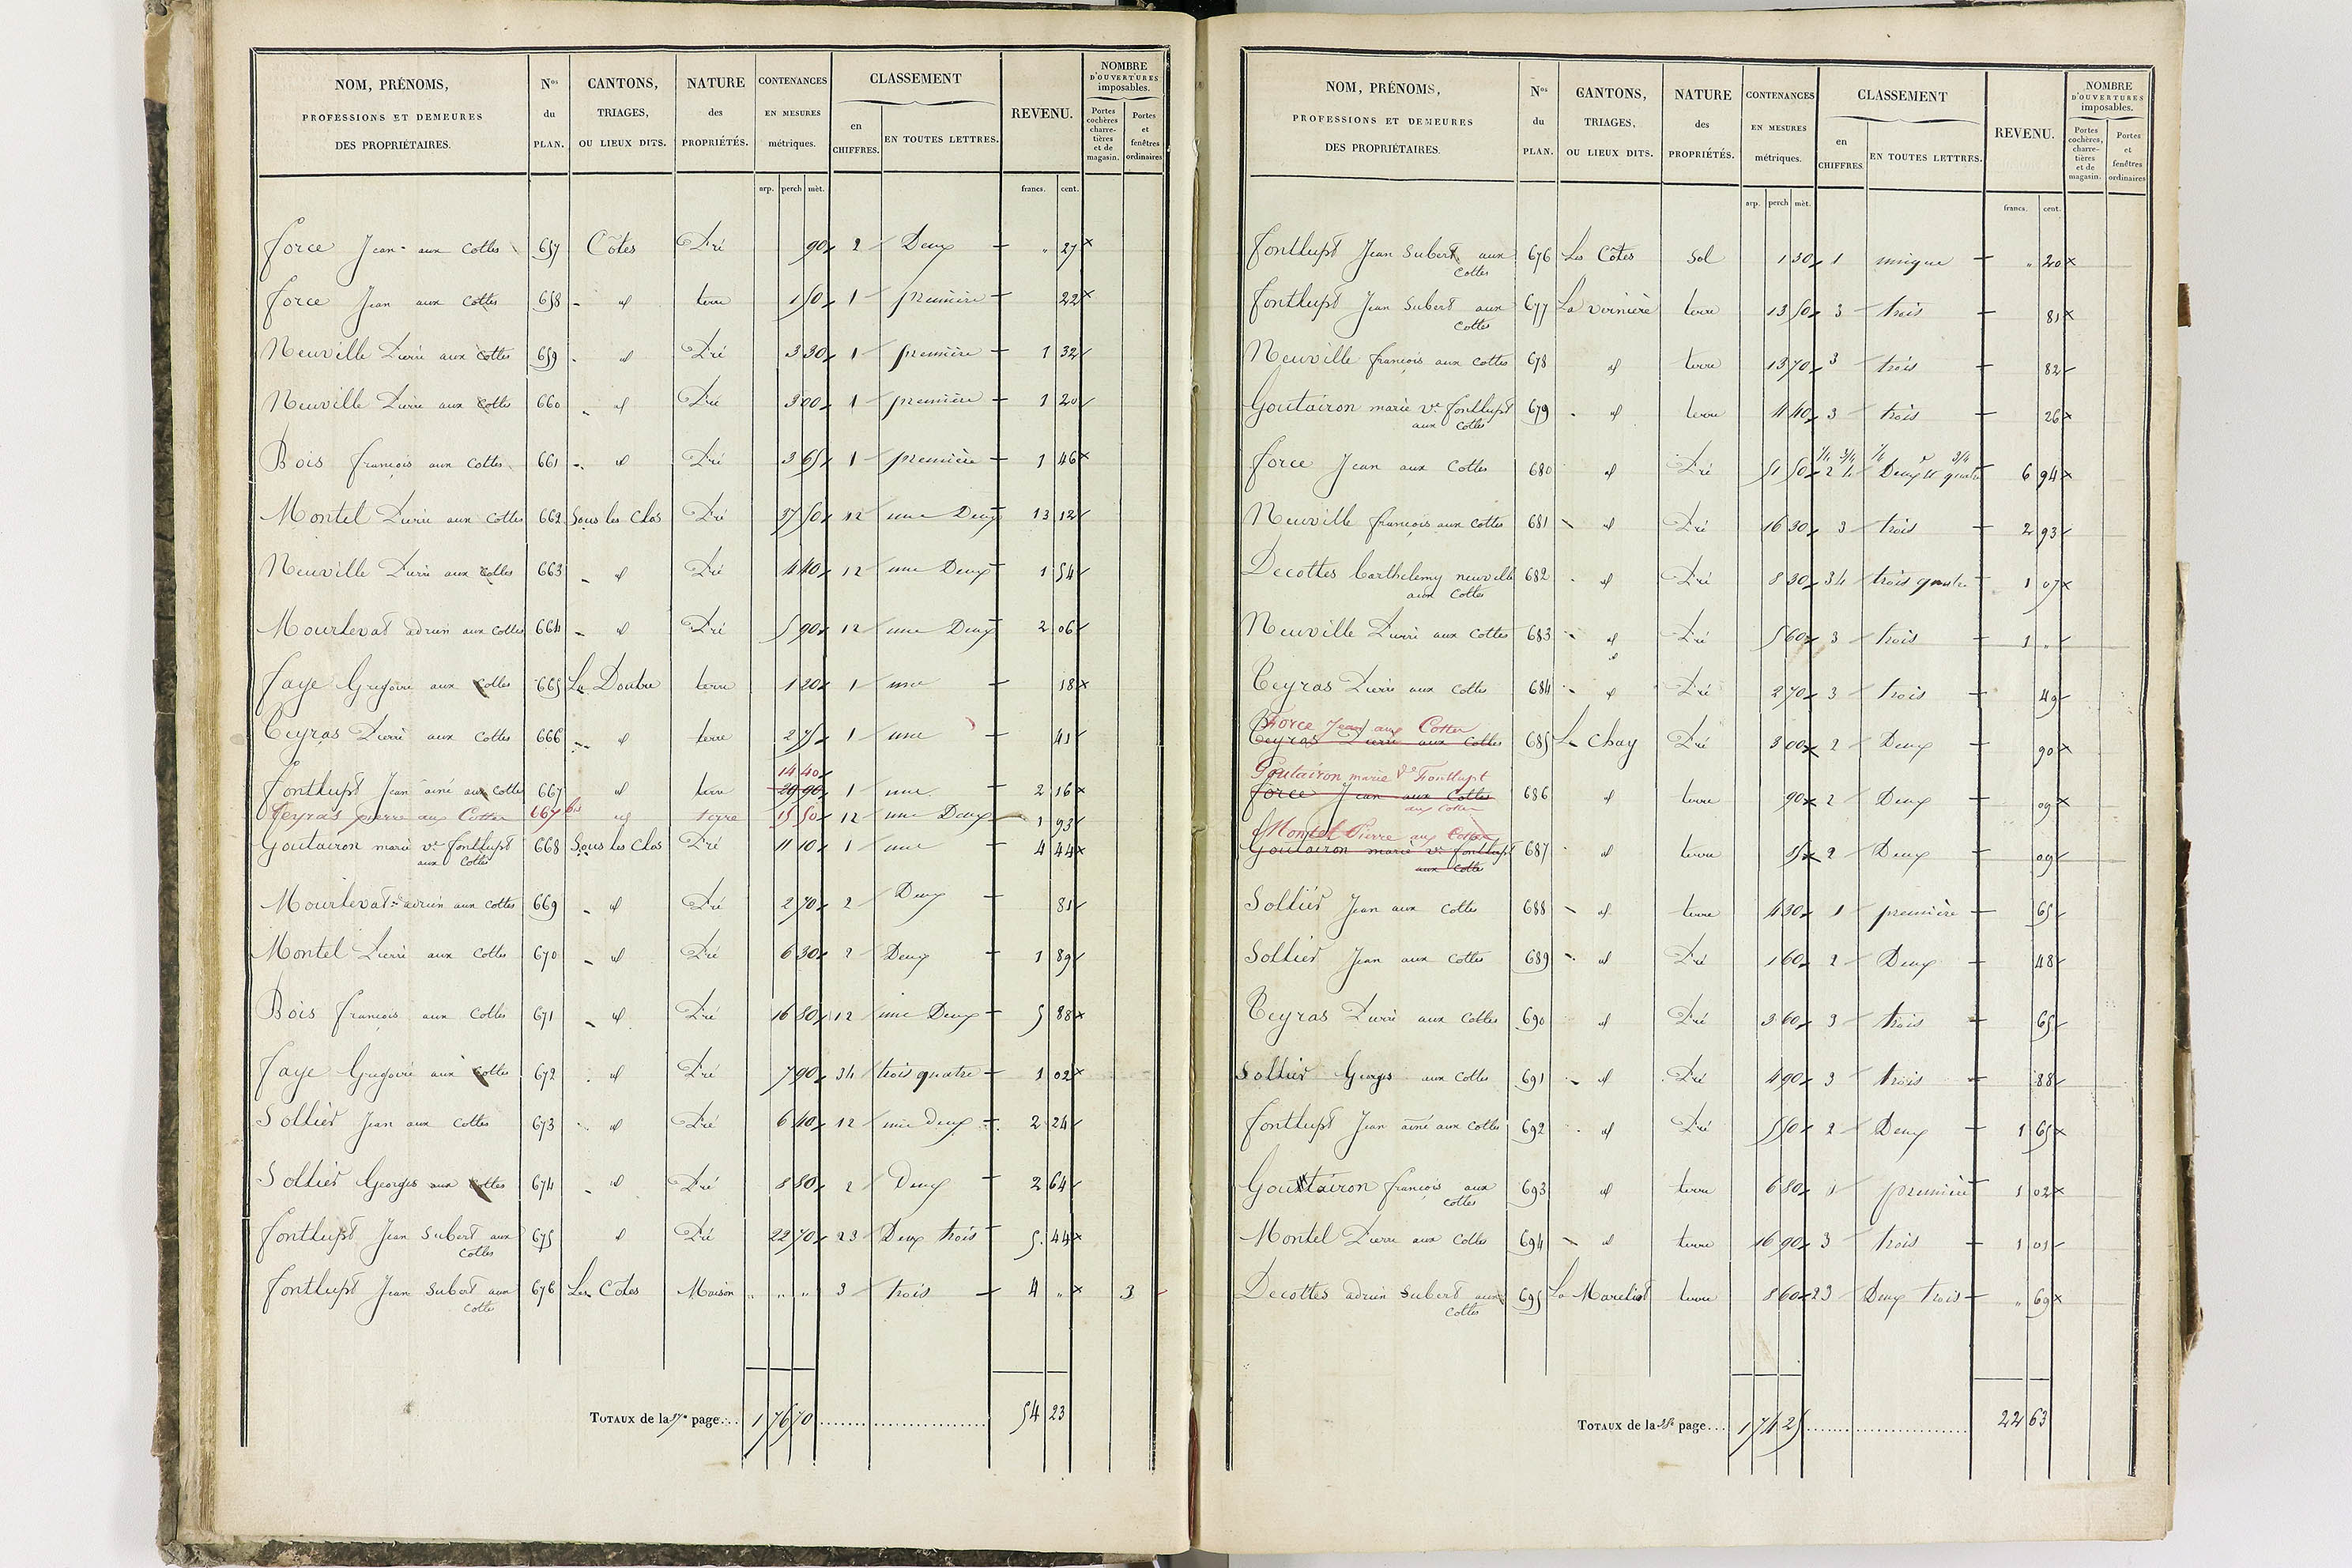 NOM, PRÉNOMS, PROFESSIONS ET DEMEURES DES PROPRIÉTAIRES. Nos du PLAN. CANTONS, TRIAGES, OU LIEUX DITS. NATURE des PROPRIÉTÉS. CONTENANCES EN MESURES métriques. CLASSEMENT en CHIFFRES. EN TOUTES LETTRES. REVENU. NOMBRE D'OUVERTURES imposables. Portes cochères charretières et de magasin. Portes et fenêtres ordinaires
arp. perch mèt. francs. cent.
force Jean aux cottes 657 Côtes Pré 90 2 Deux " 27
force Jean aux cottes 658 id terre 1 50 1 première 22
Neuville Pierre aux cottes 659 id Pré 3 30 1 première 1 32
Neuville Pierre aux cottes 660 id Pré 3 00 1 première 1 20
Bois françois aux cottes 661 id Pré 3 65 1 première 1 46
Montel Pierre aux cottes 662 Sous les clos Pré 37 50 12 une Deux 13 12
Neuville Pierre aux cottes 663 id Pré 4 40 12 une Deux 1 54
Mourlevat adrien aux cottes 664 id Pré 5 90 12 une Deux 2 06
faye Gregoire aux cottes 665 La Doubre terre 1 20 1 une 18
Ceyras Pierre aux cottes 666 id terre 2 75 1 une 41
14 40
fontlupt Jean ainé aux cottes 667 id terre 29 90 1 une 2 16
Ceyras pierre aux Cottes 667 bis id terre 15 50 12 une Deux 1 93
Goutairon marie ve fontlupt 668 Sous les clos Pré 11 10 1 une 4 44
aux cottes
Mourlevat adrien aux cottes 669 id Pré 2 70 2 Deux 81
Montel Pierre aux cottes 670 id Pré 6 30 2 Deux 1 89
Bois françois aux cottes 671 id Pré 16 80 12 une Deux 5 88
faye Gregoire aux cottes 672 id Pré 7 90 34 trois quatre 1 02
Sollier Jean aux cottes 673 id Pré 6 40 12 une deux 2 24
Sollier Georges aux cottes 674 id Pré 8 80 2 Deux 2 64
fontlupt Jean Subert aux 675 id Pré 22 70 23 Deux trois 5 44
cottes
fontlupt Jean Subert aux 676 Les Cotes Maison " " " 3 trois 4 " 3
cottes
TOTAUX de la 37e page... 1 76 70 54 23
NOM, PRÉNOMS, PROFESSIONS ET DEMEURES DES PROPRIÉTAIRES. Nos du PLAN. CANTONS, TRIAGES, OU LIEUX DITS. NATURE des PROPRIÉTÉS. CONTENANCES EN MESURES métriques. CLASSEMENT en CHIFFRES EN TOUTES LETTRES. REVENU. NOMBRE D'OUVERTURES imposables. Portes cochères, charretières et de magasin. Portes et fenêtres ordinaires
arp. perch mèt. francs. cent.
fontlupt Jean Subert aux 676 Les Côtes Sol 1 30 1 unique " 20
cottes
fontlupt Jean Subert aux 677 La vernière terre 13 50 3 trois 81
cottes
Neuville françois aux cottes 678 id terre 13 70 3 trois 82
Goutairon marie ve fontlupt 679 id terre 4 40 3 trois 26
aux cottes
force Jean aux cottes 680 id Pré 51 50 1/4 3/4 2 4 Deux et quatre 6 94
Neuville françois aux cottes 681 id Pré 16 30 3 trois 2 93
Decottes barthelemy neuville 682 id Pré 8 30 34 trois quatre 1 07
aux cottes
Neuville Pierre aux cottes 683 id Pré 5 60 3 trois 1 "
Ceyras Pierre aux cottes 684 id Pré 2 70 3 trois 49
Force Jean aux Cottes
Ceyras Pierre aux cottes 685 Le Chay Pré 3 00 2 Deux 90
Goutairon marie Ve Fontlupt
force Jean aux Cottes 686 id terre 90 2 Deux 09
aux Cottes
Montel Pierre aux Cottes
Goutairon marie ve fontlupt 687 id terre 2 Deux 09
aux cotte
Sollier Jean aux cottes 688 id terre 4 30 1 première 65
Sollier Jean aux cottes 689 id Pré 1 60 2 Deux 48
Ceyras Pierre aux cottes 690 id Pré 3 60 3 trois 65
Sollier Georges aux cottes 691 id Pré 4 90 3 trois 88
fontlupt Jean ainé aux cottes 692 id Pré 5 50 2 Deux 1 65
Goutairon françois aux 693 id terre 6 80 1 première 1 02
cottes
Montel Pierre aux cottes 694 id terre 16 90 3 trois 1 01
Decottes adrien Subert aux 695 La Mareliat terre 8 60 23 Deux trois " 69
cottes
TOTAUX de la 38e page... 1 74 25 22 63